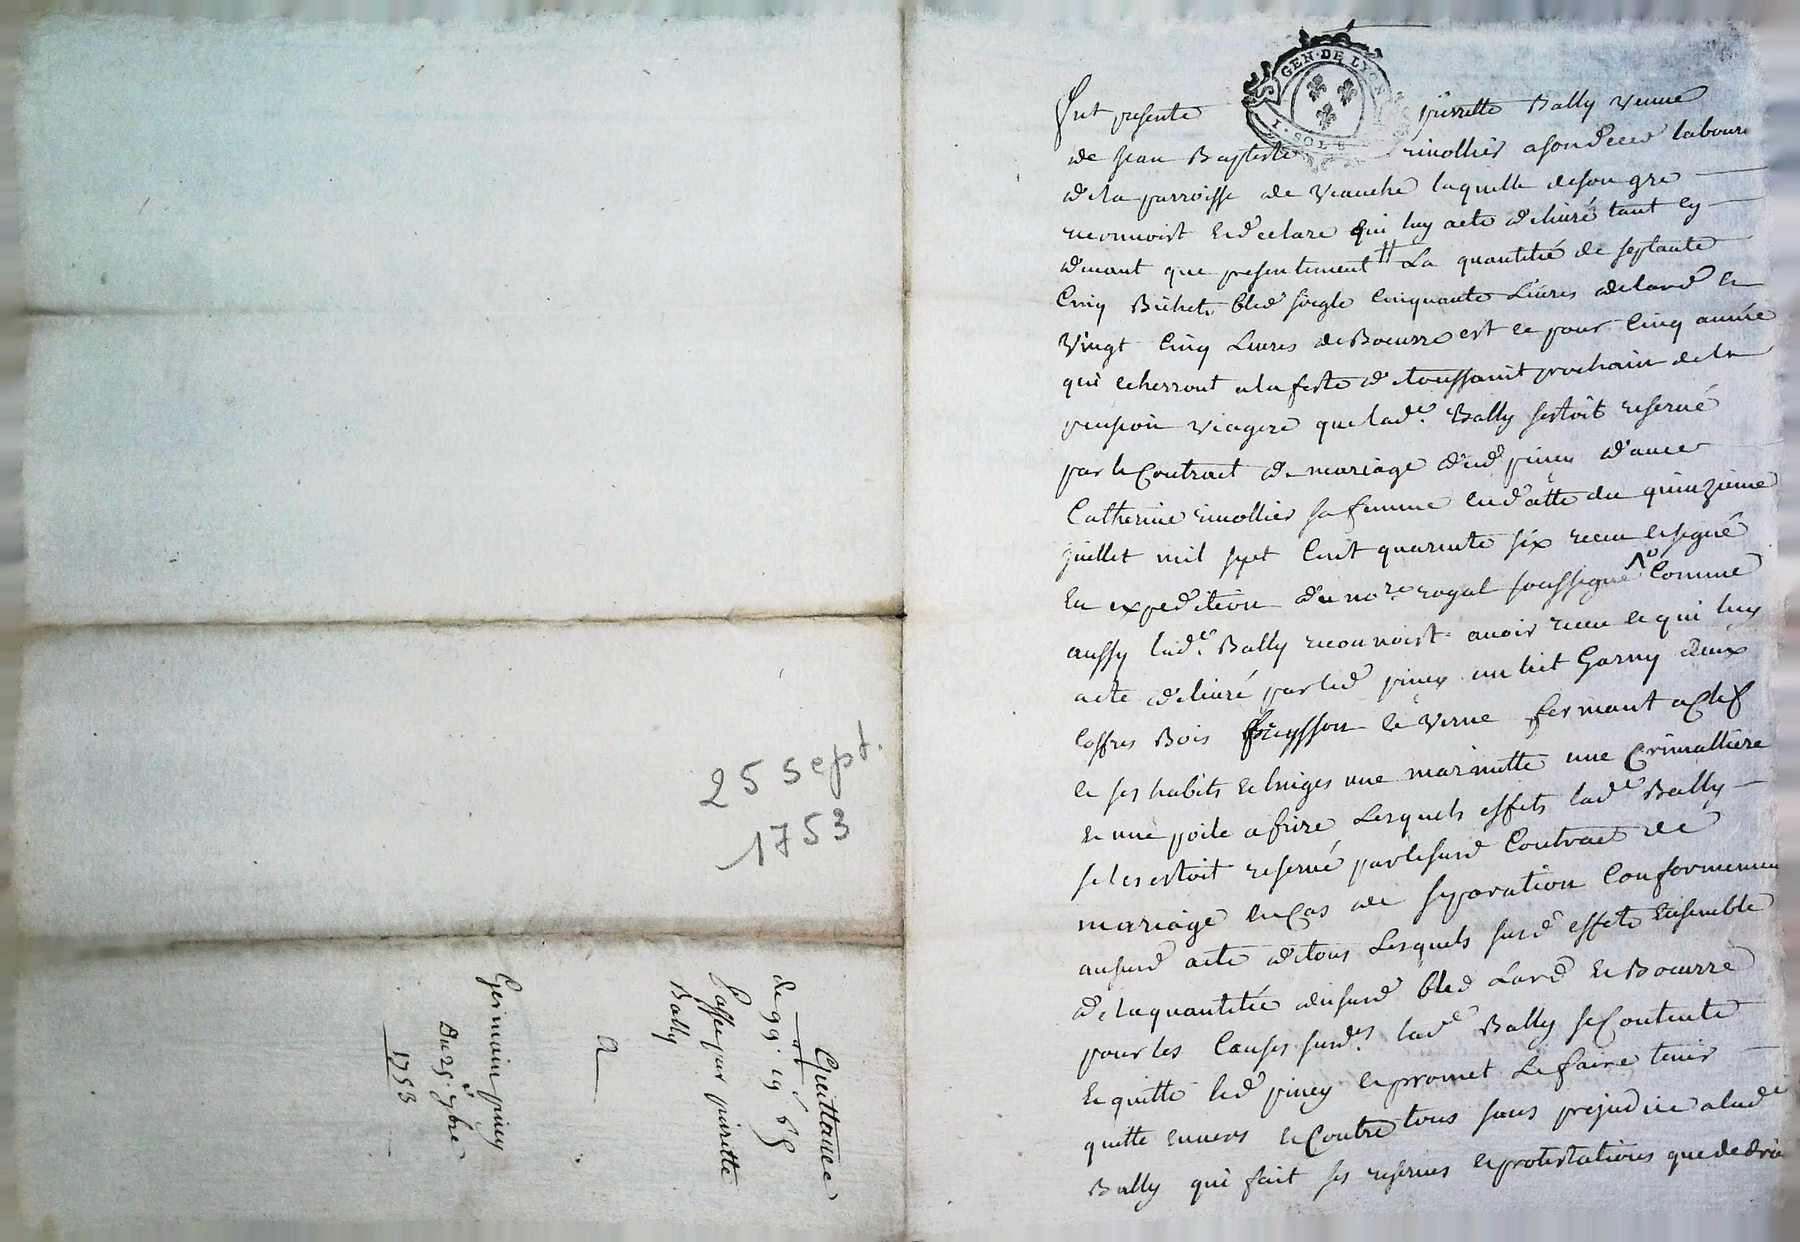 25 sept.
1753
Quittance
de 99
passée par pierrette
Bally
a
Germain piney
Du 25e 7bre
1753
GEN. DE LYON
I. SOL 8
Fut presente pierrette Bally veuve
de Jean Baptiste rivollier a son deced laboure
de la parroisse de Veauche laquelle de son gré
reconnoist et declare qui luy a ete delivré tant cy
devant que presentement La quantitié de septante
Cinq Bichets bled siegle Cinquante Livres de lard et
Vingt Cinq Livres de Boeurre est ce pour Cinq année
qui echerront a la feste de toussaint prochain de la
pension viagere que lade. Bally sestoit reservé
par le Contract de mariage dud piney d'avec
Catherine rivollier sa femme en datte du quinzieme
juillet mil sept Cent quarente six receu et signé
En expedition du nore. royal soussigné Comme
aussy lade. Bally reconnoist avoir receu et qui luy
a ete delivré par led piney un lict Garny deux
Coffres Bois et Verne fermant a Clef
et ses habits et linges une marmitte une Crimalliere
et une poile a frire Lesquels effets lade Bally
se les estoit reservé par le susd Contract de
mariage en Cas de separation Conformemen
au susd acte de tous Lesquels susd effets Ensemble
de la quantitée du susd bled Lard et Boeurre
pour les Causes susdes. lade Bally se Contente
et quitte led piney et promet Le faire tenir
quitte envers et Contre tous sans prejudice a lade
Bally qui fait ses reserves et protestations que de droi